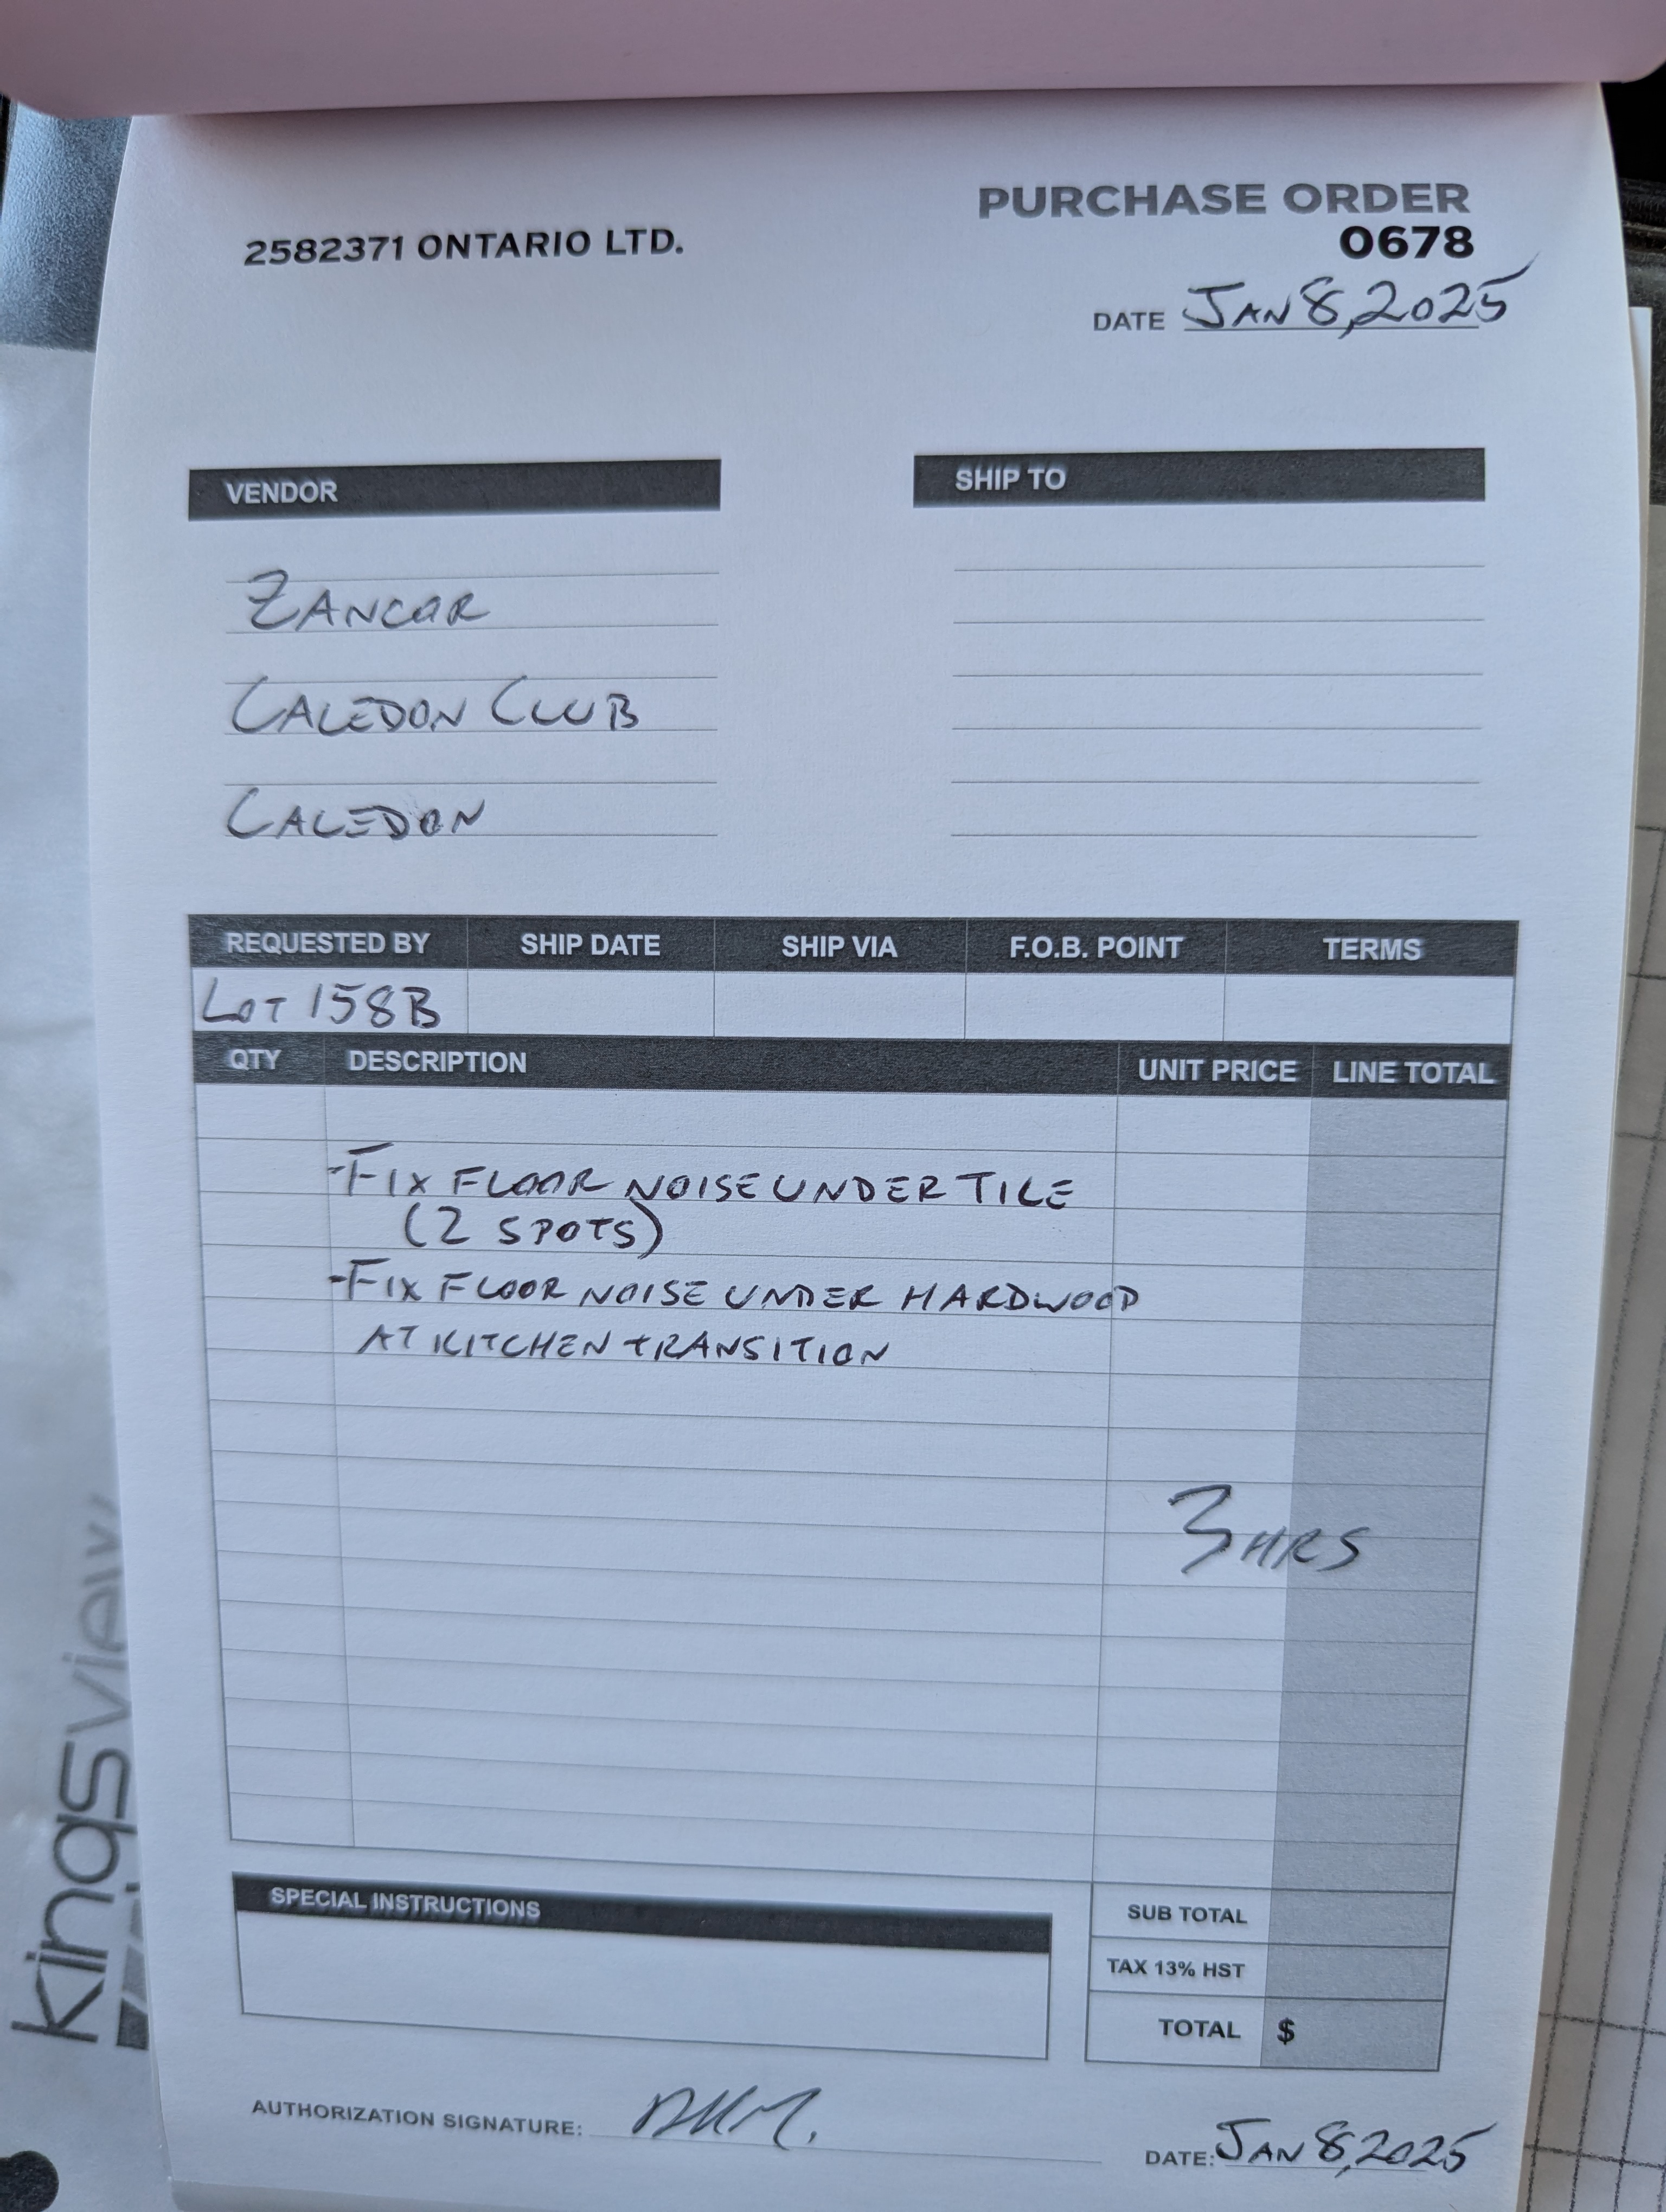 PURCHASE ORDER
2582371 ONTARIO LTD.
0678
DATE JAN 8, 2025
VENDOR
SHIP TO
ZANCOR
CALEDON CLUB
CALEDON
REQUESTED BY SHIP DATE SHIP VIA F.O.B. POINT TERMS
LOT 158B
QTY DESCRIPTION UNIT PRICE LINE TOTAL
-FIX FLOOR NOISE UNDER TILE
(2 SPOTS)
-FIX FLOOR NOISE UNDER HARDWOOD
AT KITCHEN TRANSITION
3 HRS
SPECIAL INSTRUCTIONS
SUB TOTAL
TAX 13% HST
TOTAL $
AUTHORIZATION SIGNATURE:
DATE: JAN 8, 2025
kingsview